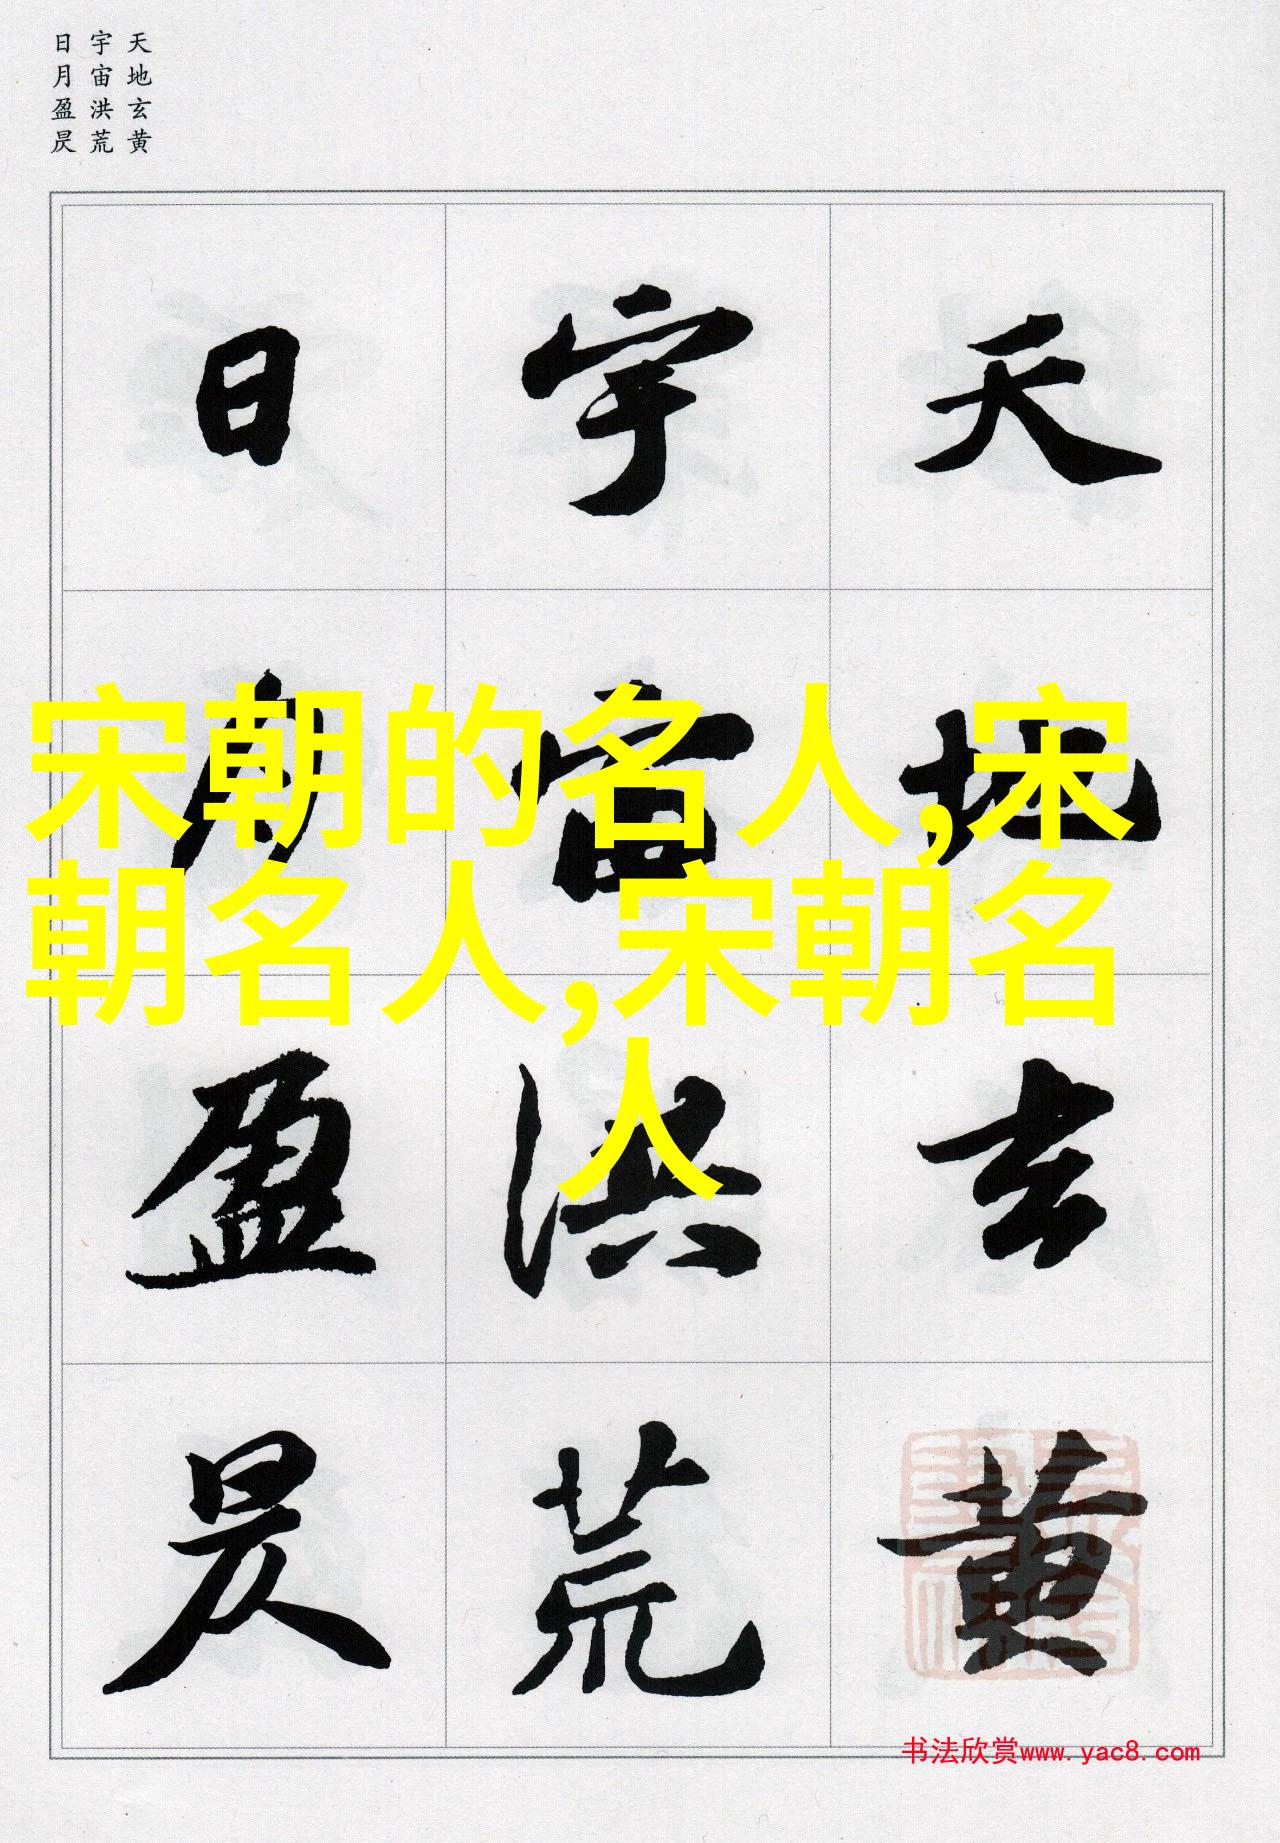 天地玄黄
宇宙洪荒
日月盈昃
天地玄黄
宇宙洪荒
日月盈昃
宋朝的名人,宋
朝名人,宋朝名
人
书法欣赏www.yac8.com